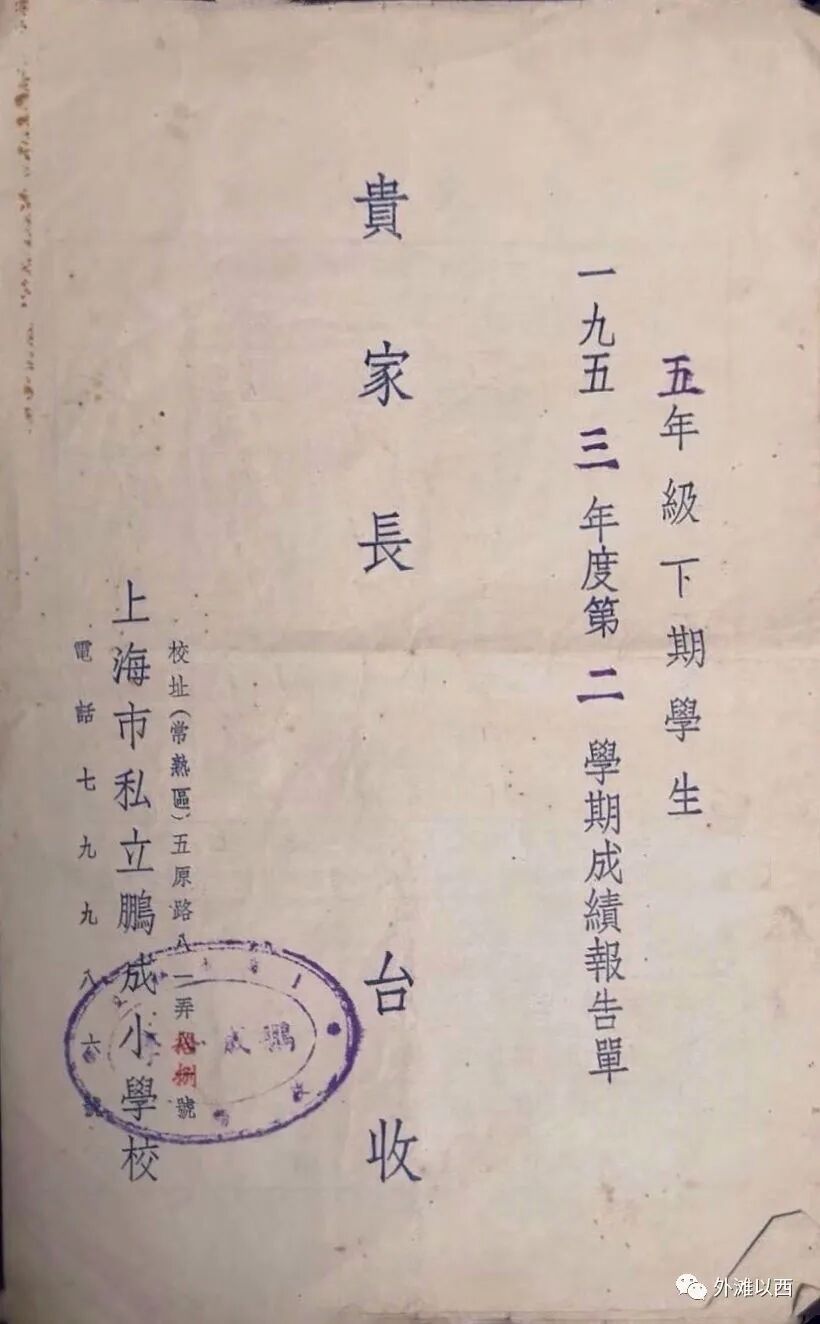 五年級下期學生
一九五三年度第二學期成績報告單
貴家長 台收
校址(常熟區)五原路八一弄捌號
上海市私立鵬成小學校
電話七九九八六號
鵬成
外滩以西